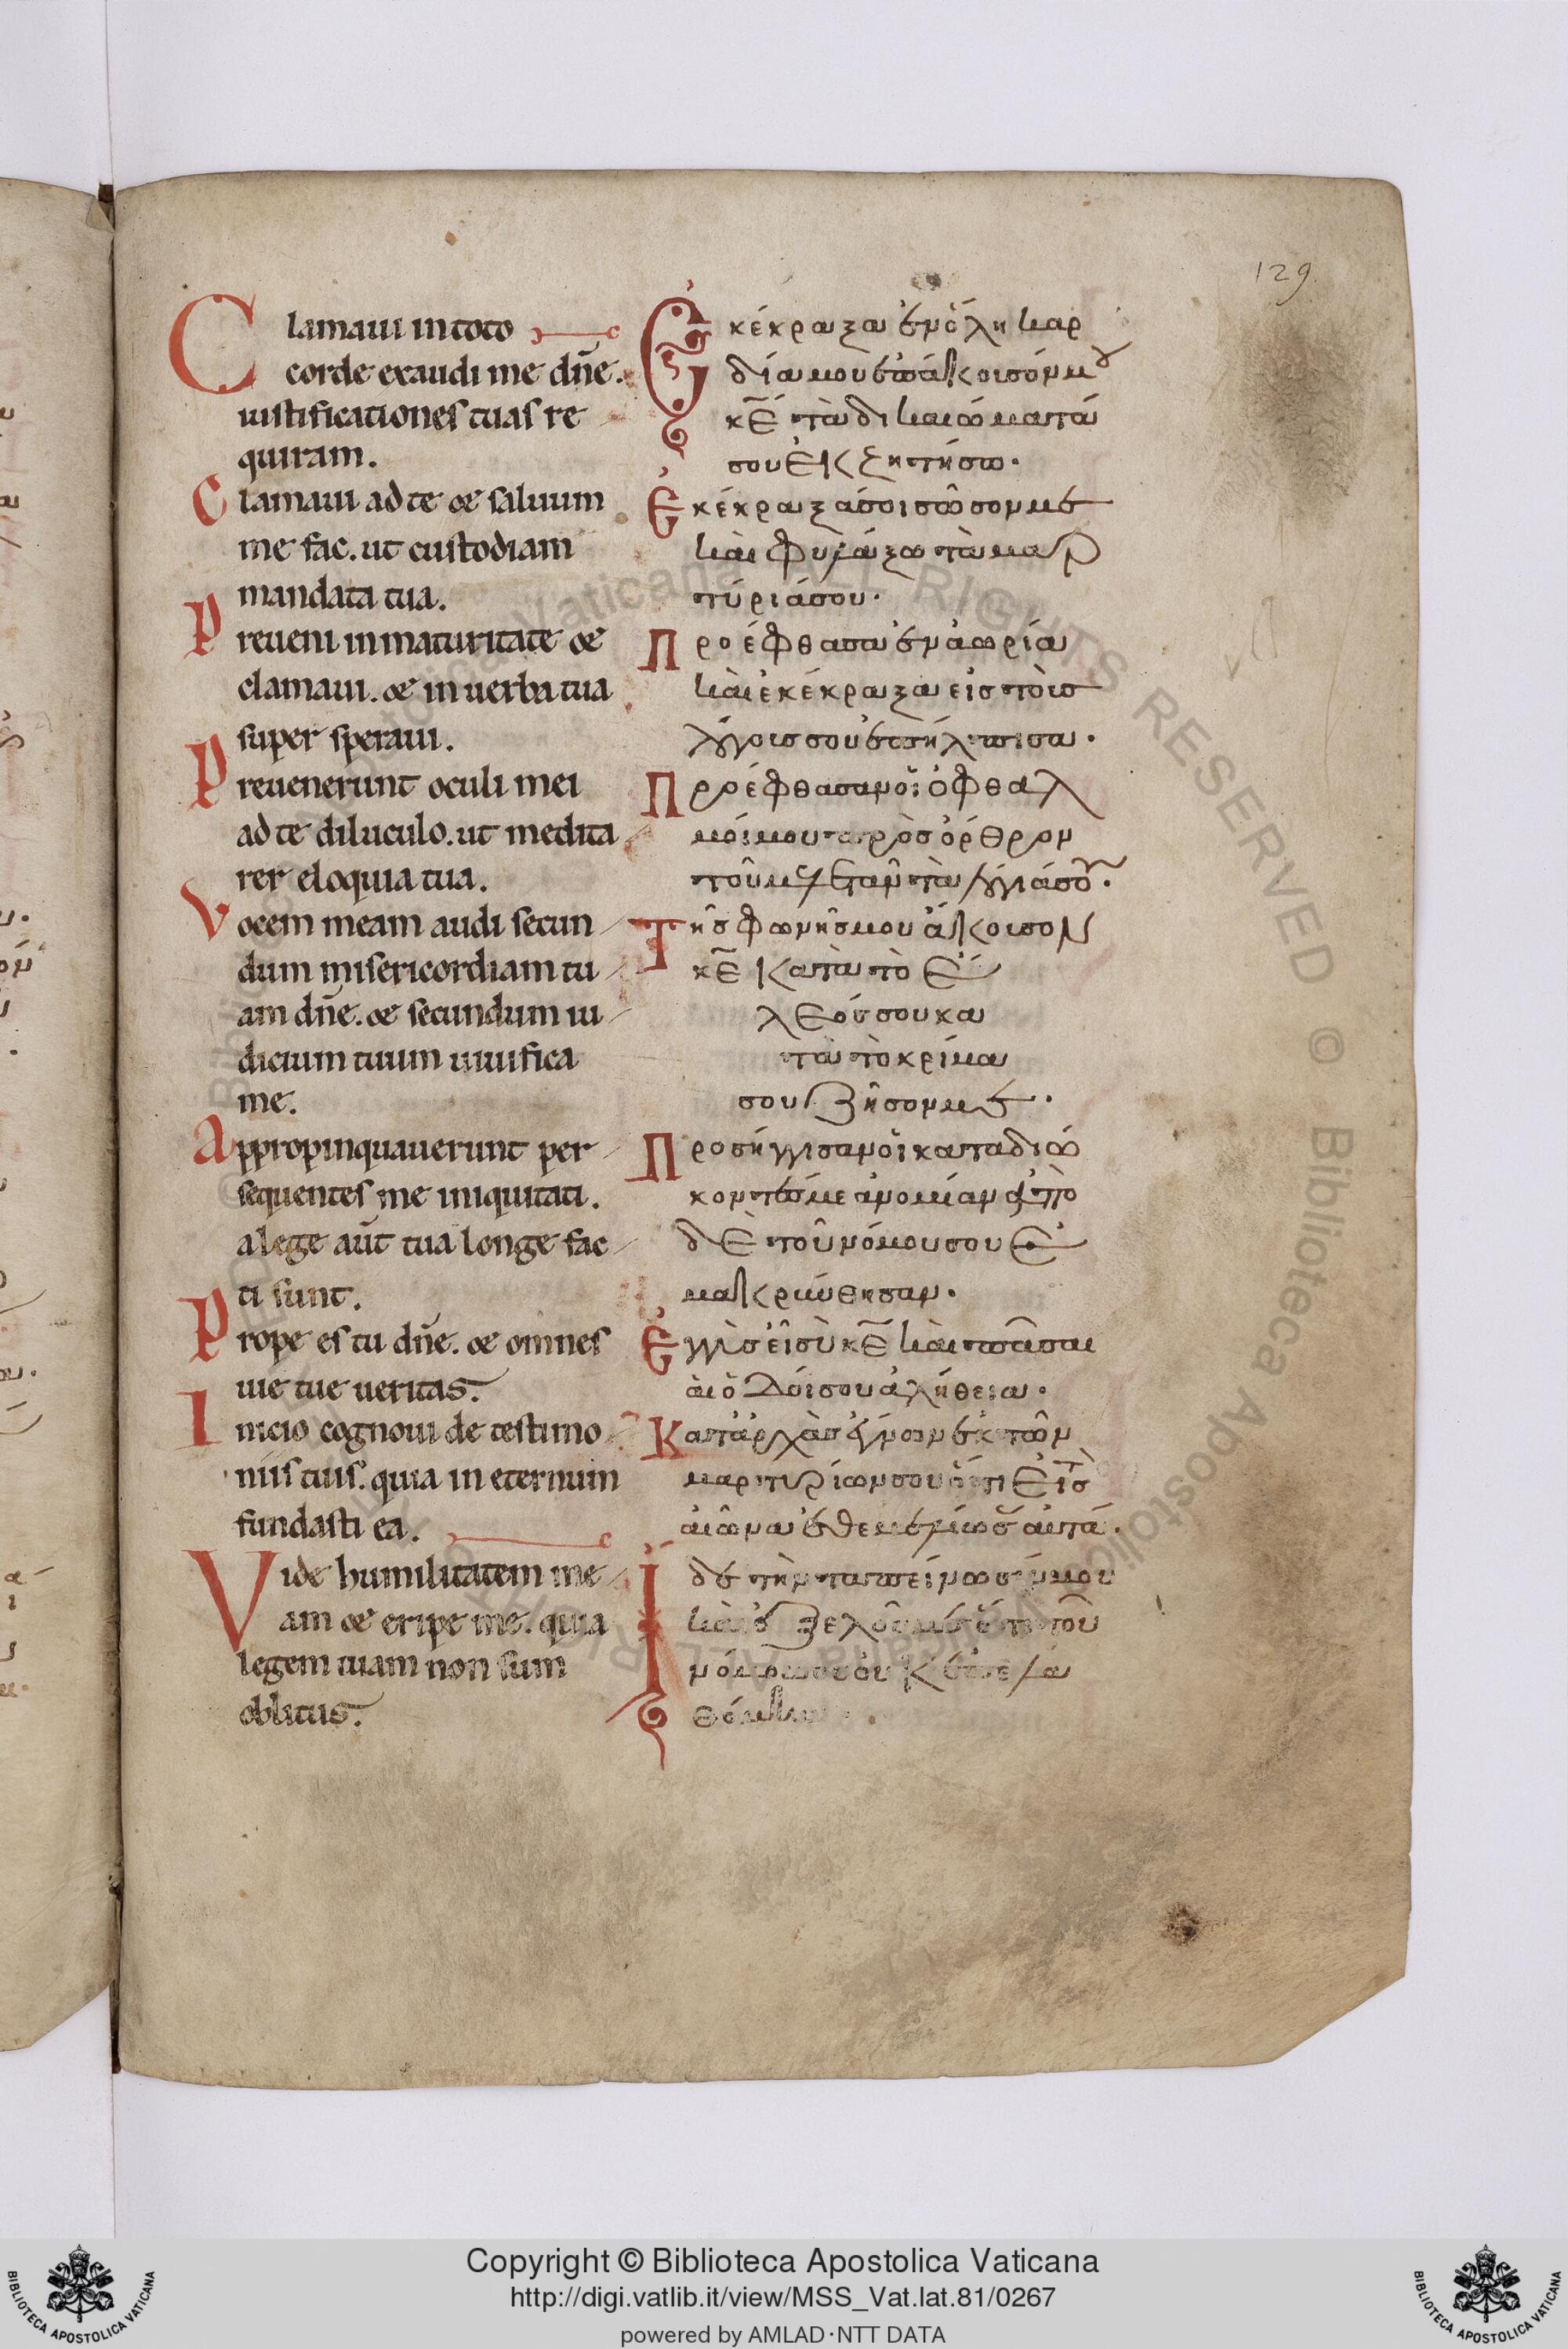 129
Clamaui in toto
corde exaudi me dn̄e.
iustificationes tuas re
quiram.
Clamaui ad te & saluum
me fac. ut custodiam
mandata tua.
Preueni in maturitate &
clamaui. & in uerba tua
super speraui.
Preuenerunt oculi mei
ad te diluculo. ut medita
rer eloquia tua.
Vocem meam audi secun
dum misericordiam tu
am dn̄e. & secundum iu
dicium tuum uiuifica
me.
Appropinquauerunt per
sequentes me iniquitati.
a lege aūt tua longe fac
ti sunt.
Prope es tu dn̄e. & omnes
uie tue ueritas.
Inicio cognoui de testimo
niis tuis. quia in eternum
fundasti ea.
Vide humilitatem me
am & eripe me. quia
legem tuam non sum
oblitus.
Ἐκέκραξα ἐν ὅλη καρ
δία μου ἐπάκουσόν μου
κ̄ε τὰ δικαιώματά
σου ἐκζητήσω.
Ἐκέκραξά σοι σῶσον με
καὶ φυλάξω τὰ μαρ
τύριά σου.
Προέφθασα ἐν ἀωρία
καὶ ἐκέκραξα εἰς τοὺς
λόγους σου ἐπήλπισα.
Προέφθασαν οἱ ὀφθαλ
μοί μου πρὸς ὄρθρον
τοῦ μελετᾶν τὰ λόγιά σου.
Τῆς φωνῆς μου ἄκουσον
κ̄ε κατὰ τὸ ἔ
λεός σου κα
τὰ τὸ κρίμα
σου ζῆσον με.
Προσήγγισαν οἱ καταδιώ
κοντές με ἀνομίαν ἀπὸ
δὲ τοῦ νόμου σου ἐ
μακρύνθησαν.
Ἐγγὺς εἶ σὺ κ̄ε καὶ πᾶσαι
αἱ ὁδοί σου ἀλήθεια.
Κατ' ἀρχὰς ἔγνων ἐκ τῶν
μαρτυρίων σου ὅτι εἰς τὸν
αἰῶνα ἐθεμελίωσας αὐτά.
Ἴδε τὴν ταπείνωσίν μου
καὶ ἐξελοῦ με ὅτι τοῦ
νόμου σου οὐκ ἐπελα
θόμην.
Copyright © Biblioteca Apostolica Vaticana
http://digi.vatlib.it/view/MSS_Vat.lat.81/0267
powered by AMLAD·NTT DATA